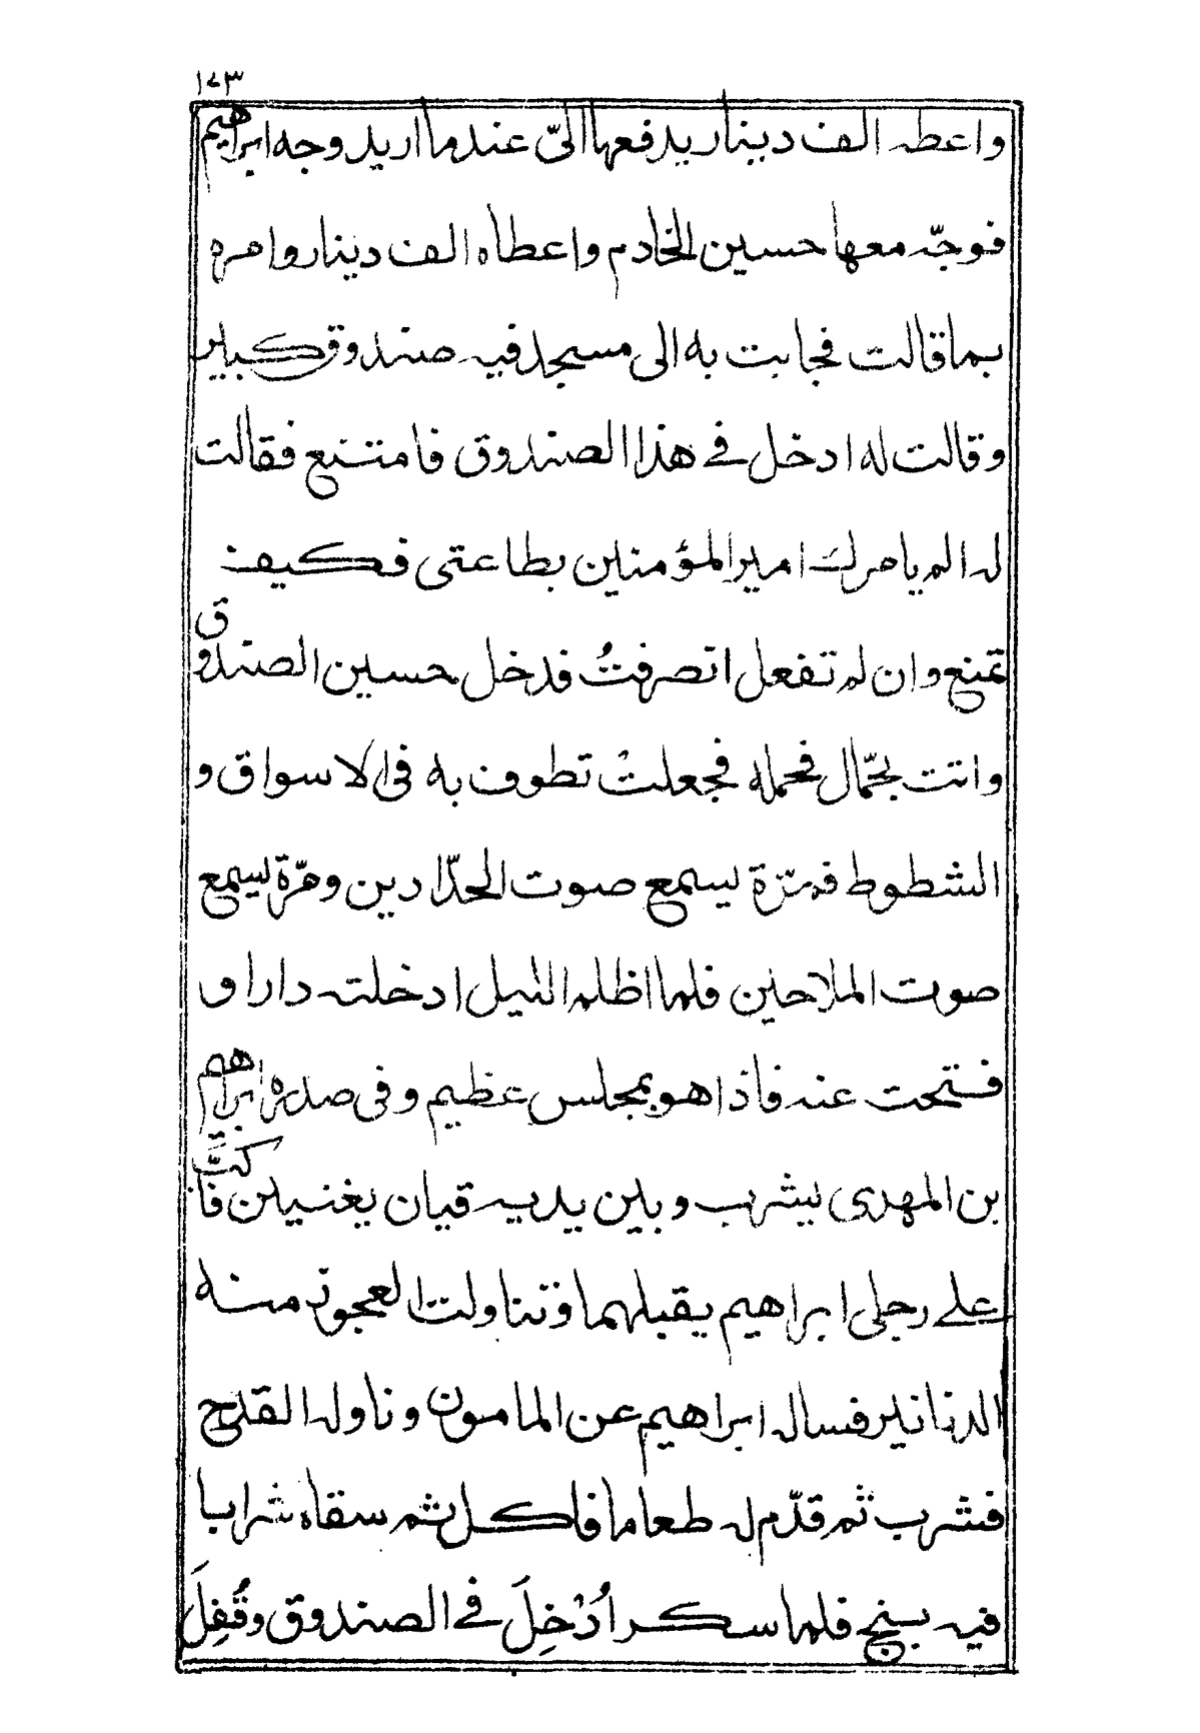 ١٧٣
واعطه الف دينار يدفعها الىّ عندما اريد وجه ابراهيم
فوجّه معها حسين الخادم واعطاه الف دينار وامره
بما قالت فجاءت به الى مسجد فيه صندوق كبير
وقالت له ادخل في هذا الصندوق فامتنع فقالت
له الم يامرك امير المؤمنين بطاعتى فكيف
تمنع وان لم تفعل انصرفتُ فدخل حسين الصندوق
واتت بحمّال فحمله فجعلتْ تطوف به فى الاسواق و
الشطوط فمرّة يسمع صوت الحدّادين ومرّة يسمع
صوت الملاحين فلما اظلم الليل ادخلته دارا و
فتحت عنه فاذا هو بمجلس عظيم وفى صدره ابراهيم
بن المهدى يشرب وبين يديه قيان يغنين فانكبّ
على رجلى ابراهيم يقبلهما وتناولت العجوز منه
الدنانير فساله ابراهيم عن المامون وناوله القدح
فشرب ثم قدّم له طعاما فاكل ثم سقاه شرابا
فيه بنج فلما سكر اُدْخِلَ في الصندوق وقُفِلَ